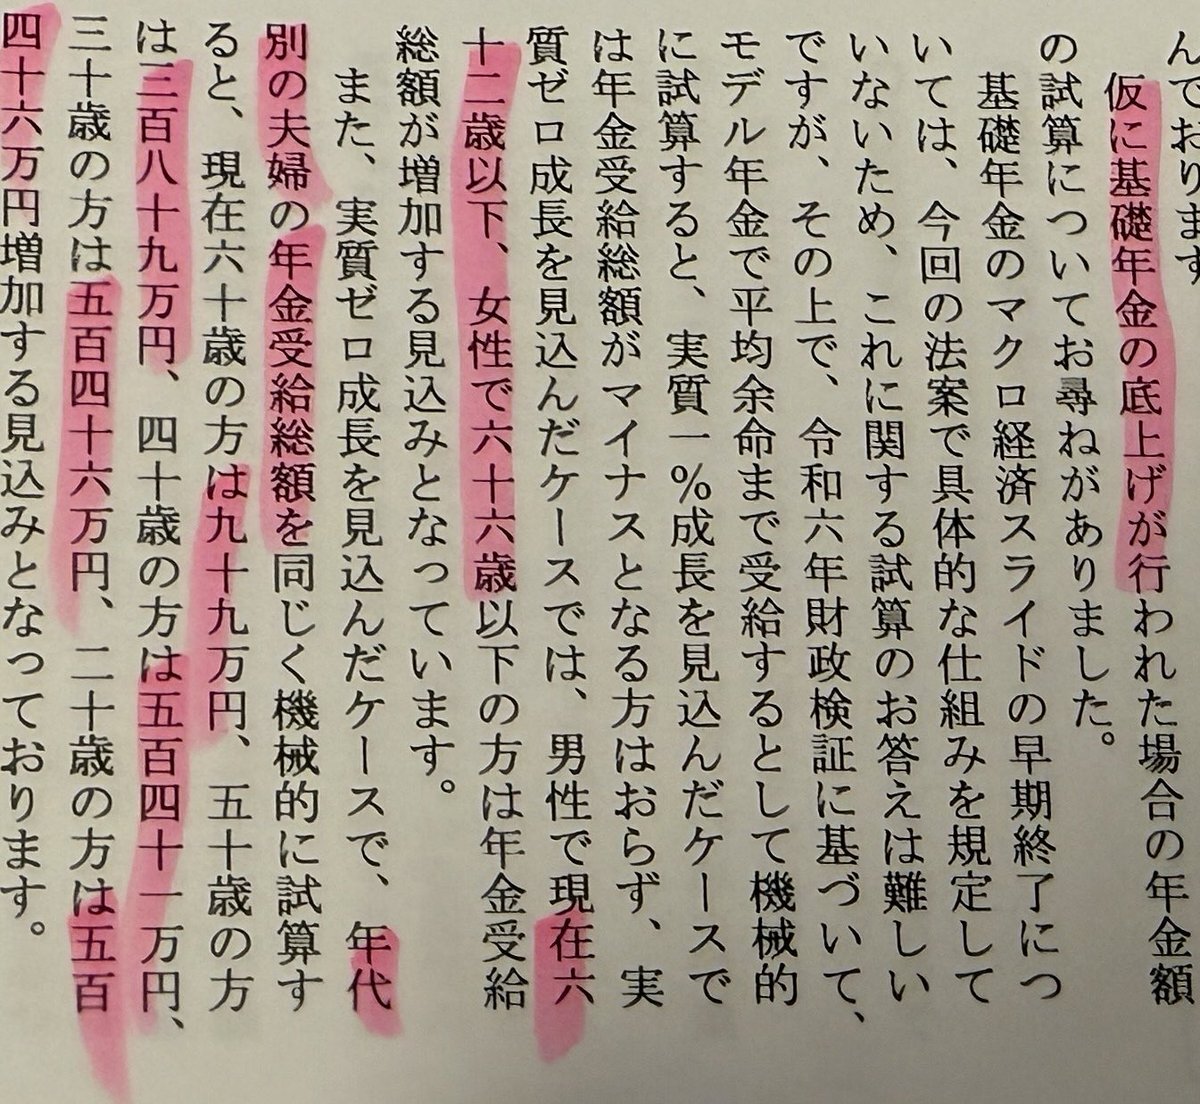 んでおります
仮に基礎年金の底上げが行われた場合の年金額
の試算についてお尋ねがありました。
基礎年金のマクロ経済スライドの早期終了につ
いては、今回の法案で具体的な仕組みを規定して
いないため、これに関する試算のお答えは難しい
ですが、その上で、令和六年財政検証に基づいて、
モデル年金で平均余命まで受給するとして機械的
に試算すると、実質一%成長を見込んだケースで
は年金受給総額がマイナスとなる方はおらず、実
質ゼロ成長を見込んだケースでは、男性で現在六
十二歳以下、女性で六十六歳以下の方は年金受給
総額が増加する見込みとなっています。
また、実質ゼロ成長を見込んだケースで、年代
別の夫婦の年金受給総額を同じく機械的に試算す
ると、現在六十歳の方は九十九万円、五十歳の方
は三百八十九万円、四十歳の方は五百四十一万円、
三十歳の方は五百四十六万円、二十歳の方は五百
四十六万円増加する見込みとなっております。